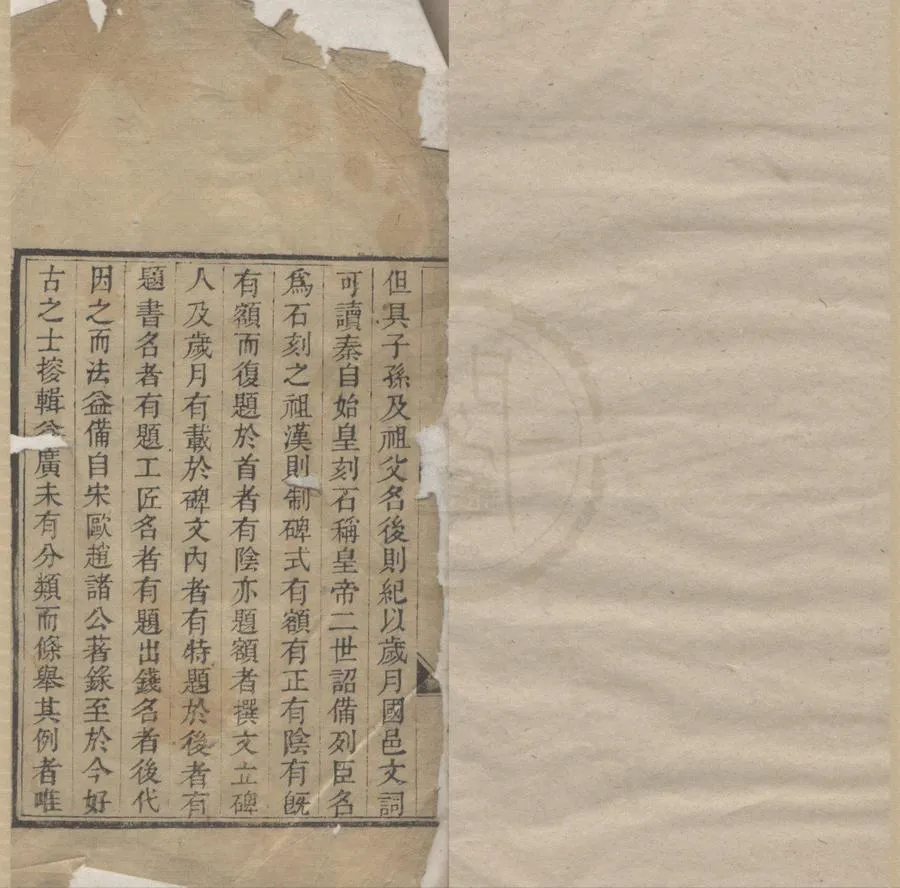 但具子孫及祖父名後則紀以歲月國邑文詞
可讀秦自始皇刻石稱皇帝二世詔備列臣名
爲石刻之祖漢則制碑式有額有正有陰有旣
有額而復題於首者有陰亦題額者撰文立碑
人及歲月有載於碑文內者有特題於後者有
題書名者有題工匠名者有題出錢名者後代
因之而法益備自宋歐趙諸公著錄至於今好
古之士搜輯益廣未有分類而條舉其例者唯